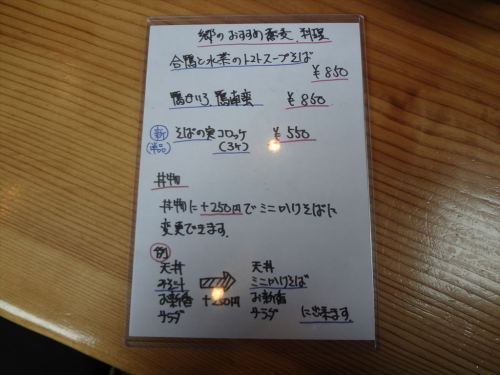 郷のおすすめ蕎麦、料理
合鴨と水菜のトマトスープそば
¥850
鴨せいろ 鴨南蛮 ¥850
新 そばの実コロッケ ¥550
(単品) (3ケ)
丼物
丼物に+250円でミニかけそばに
変更できます。
例
天丼 天丼
みそ汁 ミニかけそば
お新香 +250円 お新香
サラダ サラダ に出来ます。